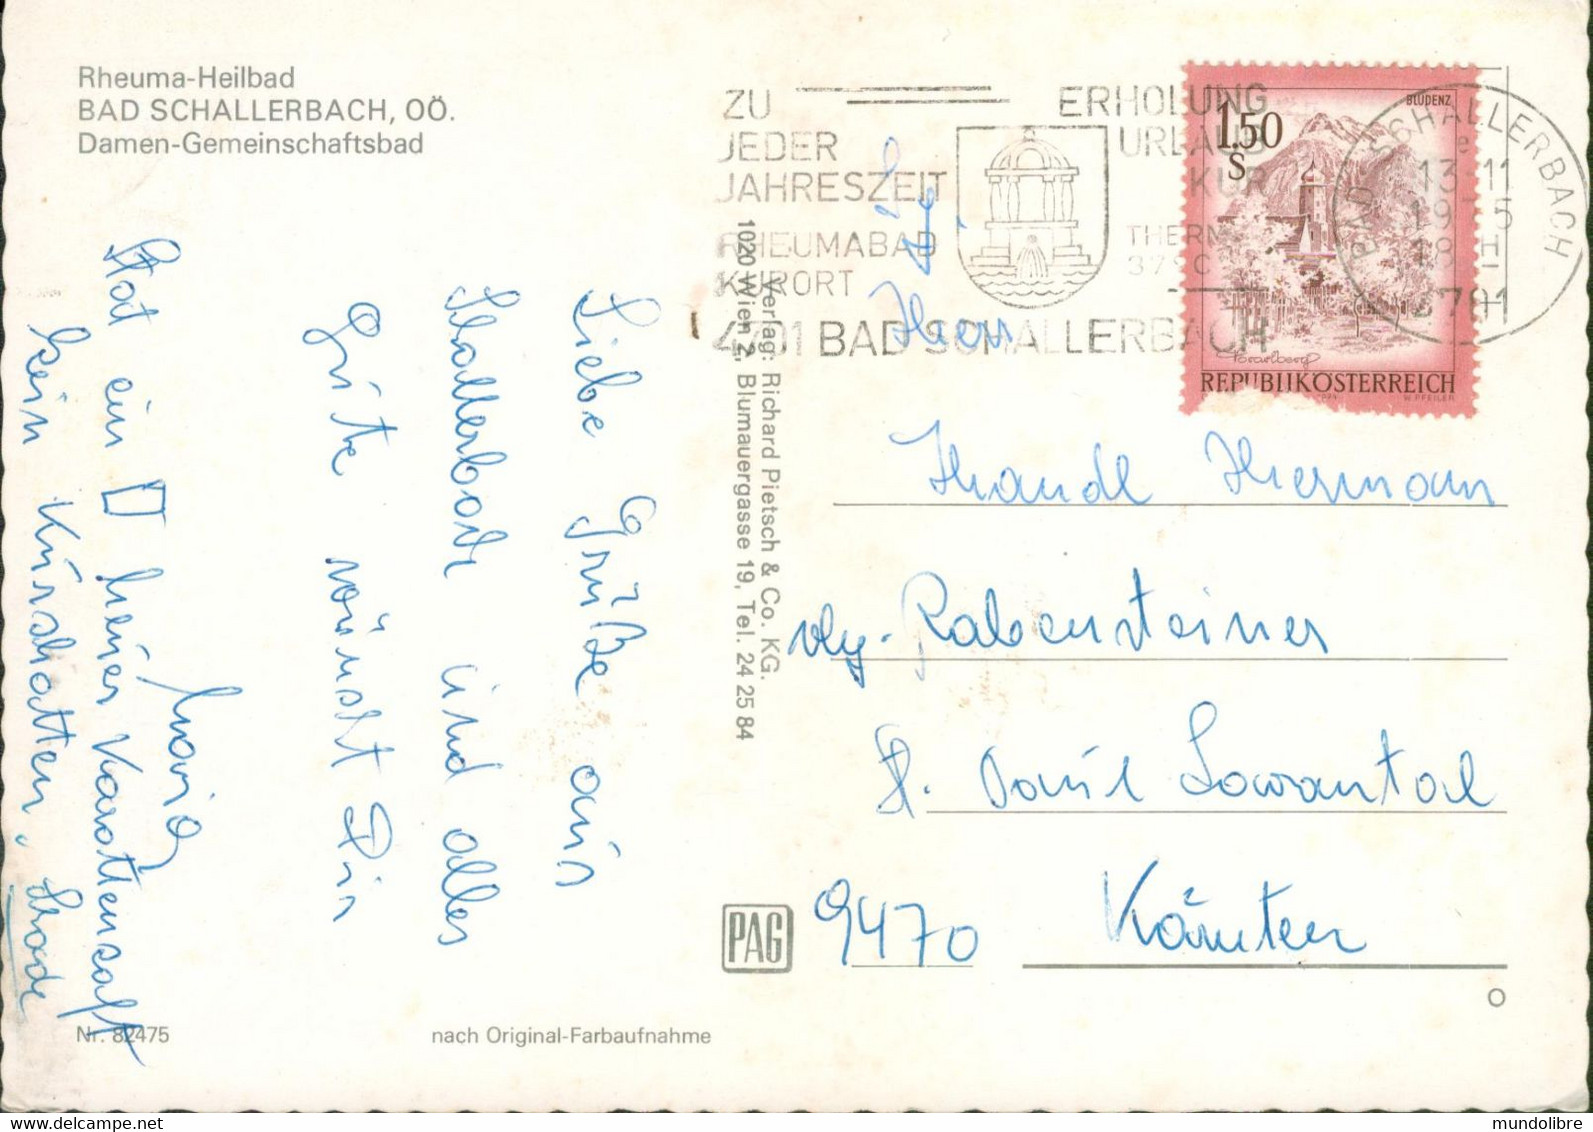 Rheuma-Heilbad
BAD SCHALLERBACH, OÖ.
Damen-Gemeinschaftsbad
ZU
JEDER
JAHRESZEIT
RHEUMABAD
KURORT
ERHOLUNG
URLAUB
KUR
THERME
37° C
4701 BAD SCHALLERBACH
BLUDENZ
1.50
S
Vorarlberg
REPUBLIK ÖSTERREICH
W. PFEILER
BAD SCHALLERBACH
4701
Liebe Grüße aus
Schallerbach und alles
Gute wünscht Dir
Maria
Hat ein
kein Kurschatten, schade
Verlag: Richard Pietsch & Co. KG.
1020 Wien 2, Blumauergasse 19, Tel. 24 25 84
Herrn
Handl Hermann
vlg. Rabensteiner
St. Paul Lavanttal
9470 Kärnten
PAG
Nr. 82475
nach Original-Farbaufnahme
mundolibre